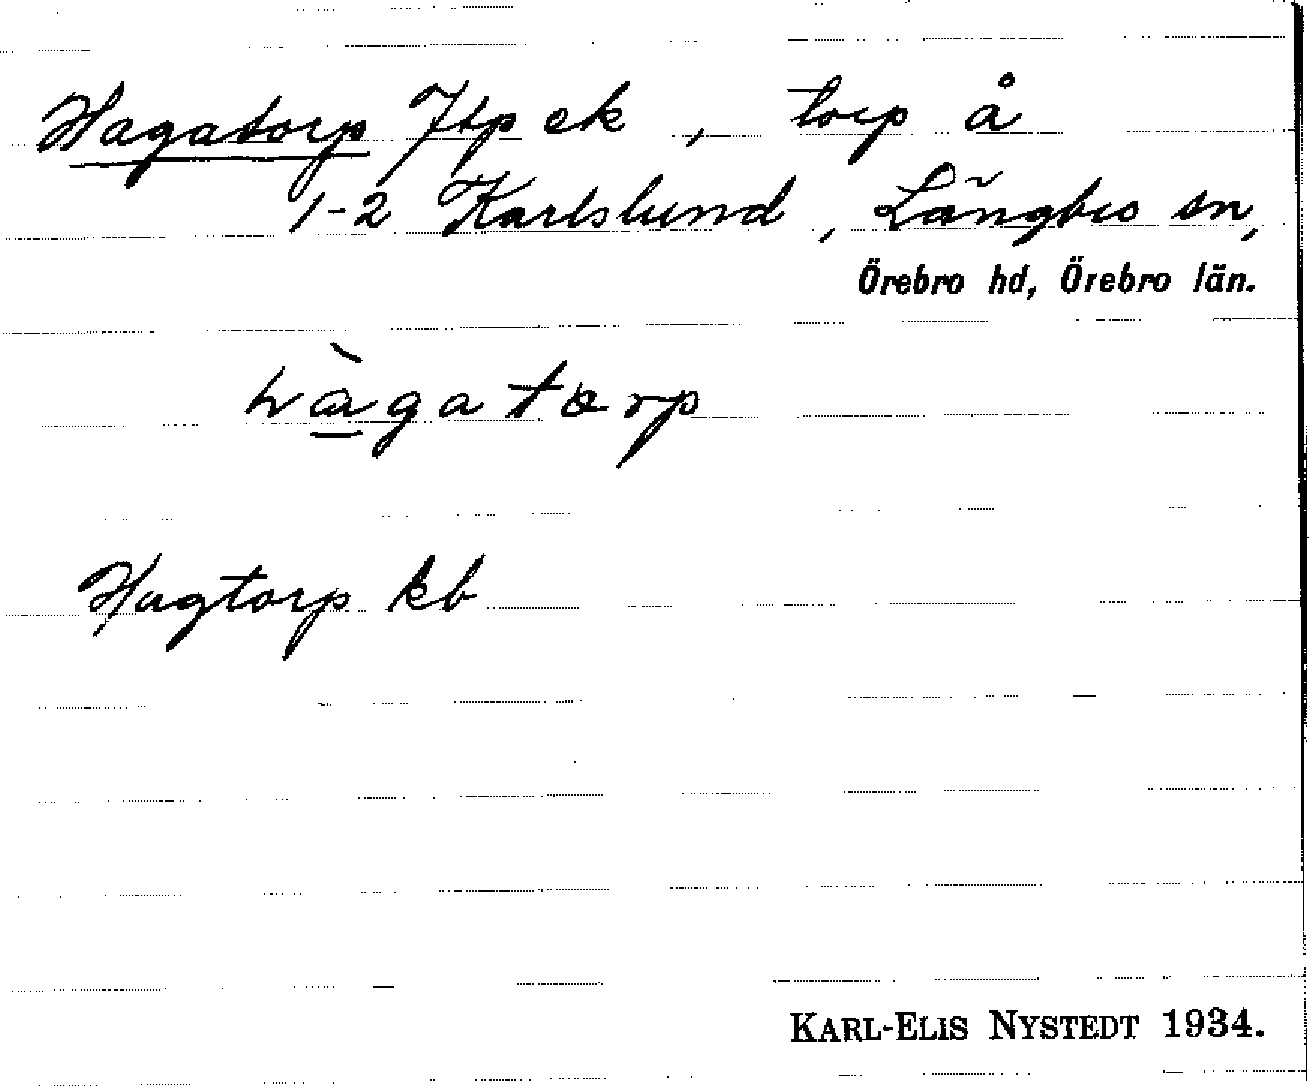 Hagatorp Jtp ek, torp å
1-2 Karlslund, Längbro sn,
Örebro hd, Örebro län.
hàgatorp
Hagtorp kb
KARL-ELIS NYSTEDT 1934.